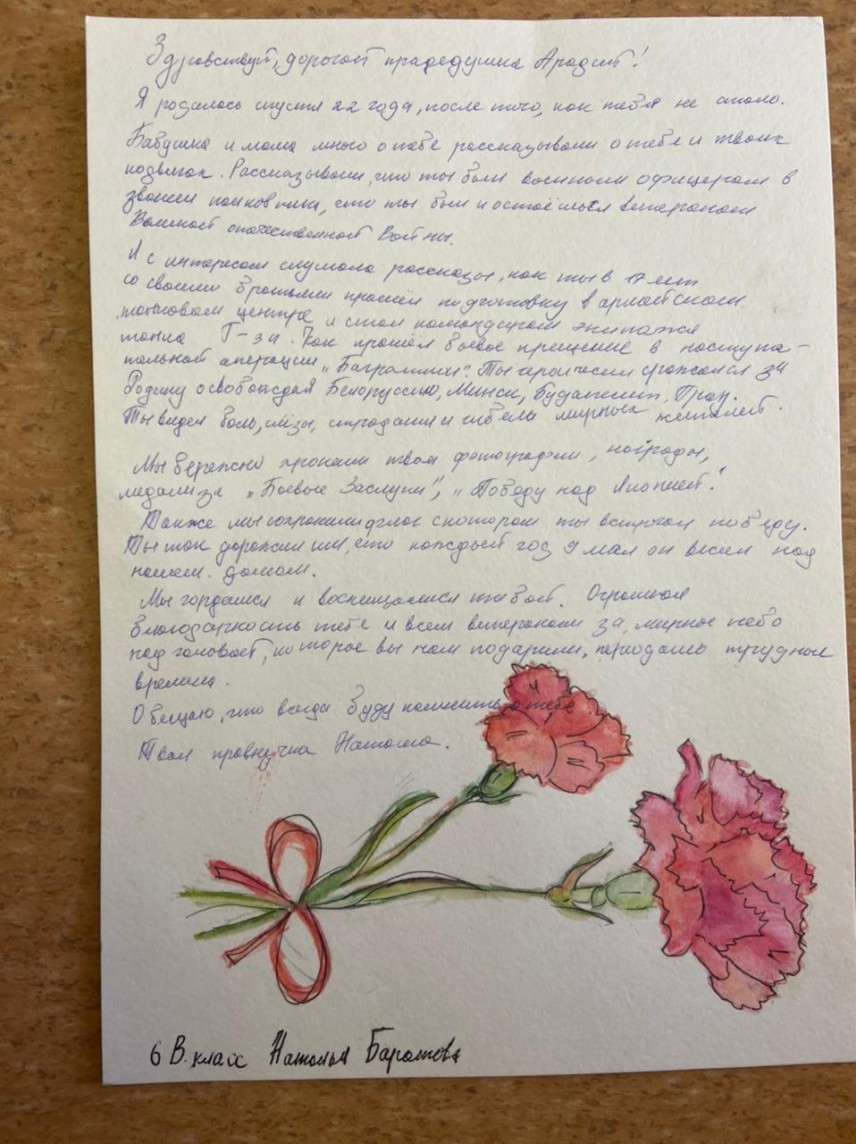 Здравствуй, дорогой прадедушка Аркадий!
Я родилась спустя 22 года, после того, как тебя не стало.
Бабушка и мама много о тебе рассказывали о тебе и твоих
подвигах. Рассказывали, что ты был военным офицером в
звании полковника, что ты был и остаёшься ветераном
Великой отечественной Войны.
Я с интересом слушала рассказы, как ты в 17 лет
со своими братьями прошёл подготовку в армейском
танковом центре и стал командиром экипажа
танка Т-34. Как прошёл боевое крещение в наступа-
тельной операции „Багратион". Ты героически сражался за
Родину освобождая Белоруссию, Минск, Будапешт, Прагу.
Ты видел боль, слёзы, страдания и гибель мирных жителей.
Мы бережно храним твои фотографии, награды,
медали за „Боевые Заслуги", „Победу над Японией".
Также мы сохранили флаг с которым ты встречал победу.
Ты так дорожил им, что каждый год 9 мая он висел над
нашем домом.
Мы гордимся и восхищаемся тобой. Огромная
благодарность тебе и всем ветеранам за мирное небо
над головой, которое вы нам подарили, трудное
времена.
Обещаю, что всегда буду помнить о тебе
Твоя правнучка Наташа.
6 В. класс Наталья Баратова